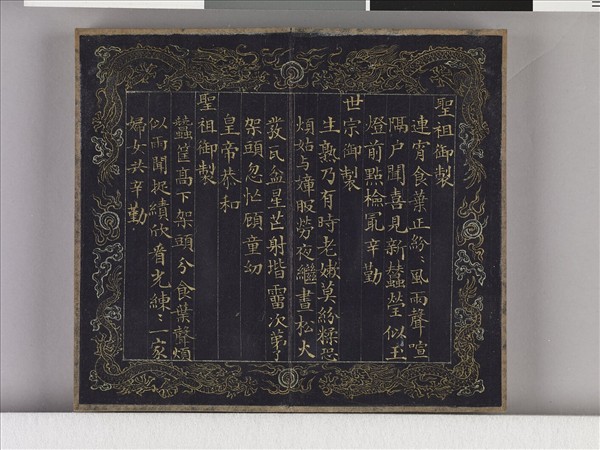 聖祖御製
連宵食葉正紛〻風雨聲喧
隔戶聞喜見新蠶瑩似玉
燈前點檢最辛勤
世宗御製
生熟乃有時老嫩莫紛糅恐
煩姑与嫜服勞夜繼晝松火
發瓦盆星芒射堦霤次第了
架頭忽忙顧童幼
皇帝恭和
聖祖御製
蠶筐高下架頭分食葉聲煩
似雨聞捉績欣看光練〻一家
婦女共辛勤